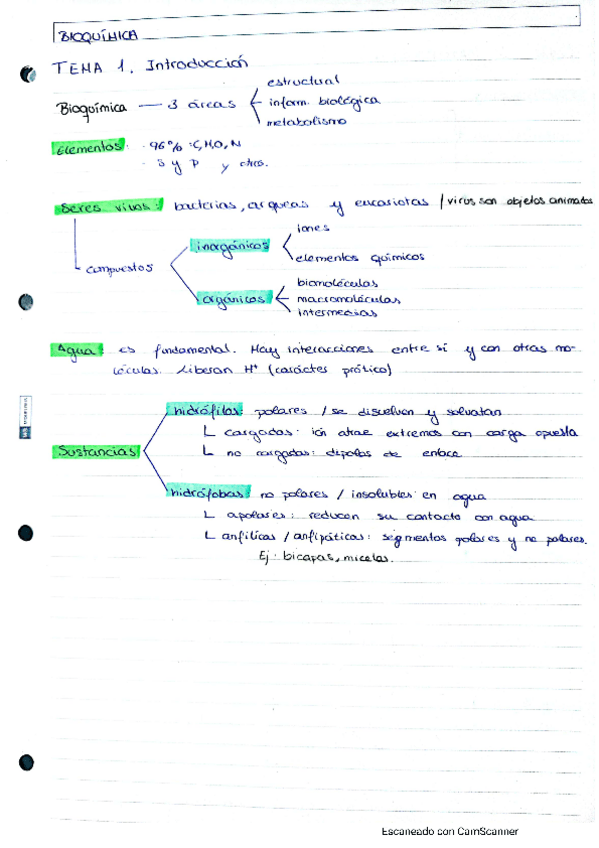 BIOQUÍMICA
TEMA 1. Introducción
estructural
Bioquímica — 3 áreas inform. biológica
metabolismo
Elementos: · 96% : C,H,O,N
· S y P y otros.
Seres vivos: bacterias, arqueas y eucariotas / virus son objetos animados
iones
inorgánicos
elementos químicos
compuestos
biomoléculas
orgánicos macromoléculas
intermedias
Agua: es fundamental. Hay interacciones entre sí y con otras mo-
léculas. Liberan H⁺ (carácter prótico)
hidrófilas: polares / se disuelven y solvatan
cargadas: ión atrae extremos con carga opuesta
Sustancias no cargadas: dipolos de enlace
hidrófobas: no polares / insolubles en agua
apolares: reducen su contacto con agua
anfifílicas / anfipáticas: segmentos polares y no polares.
Ej: bicapas, micelas.
Escaneado con CamScanner